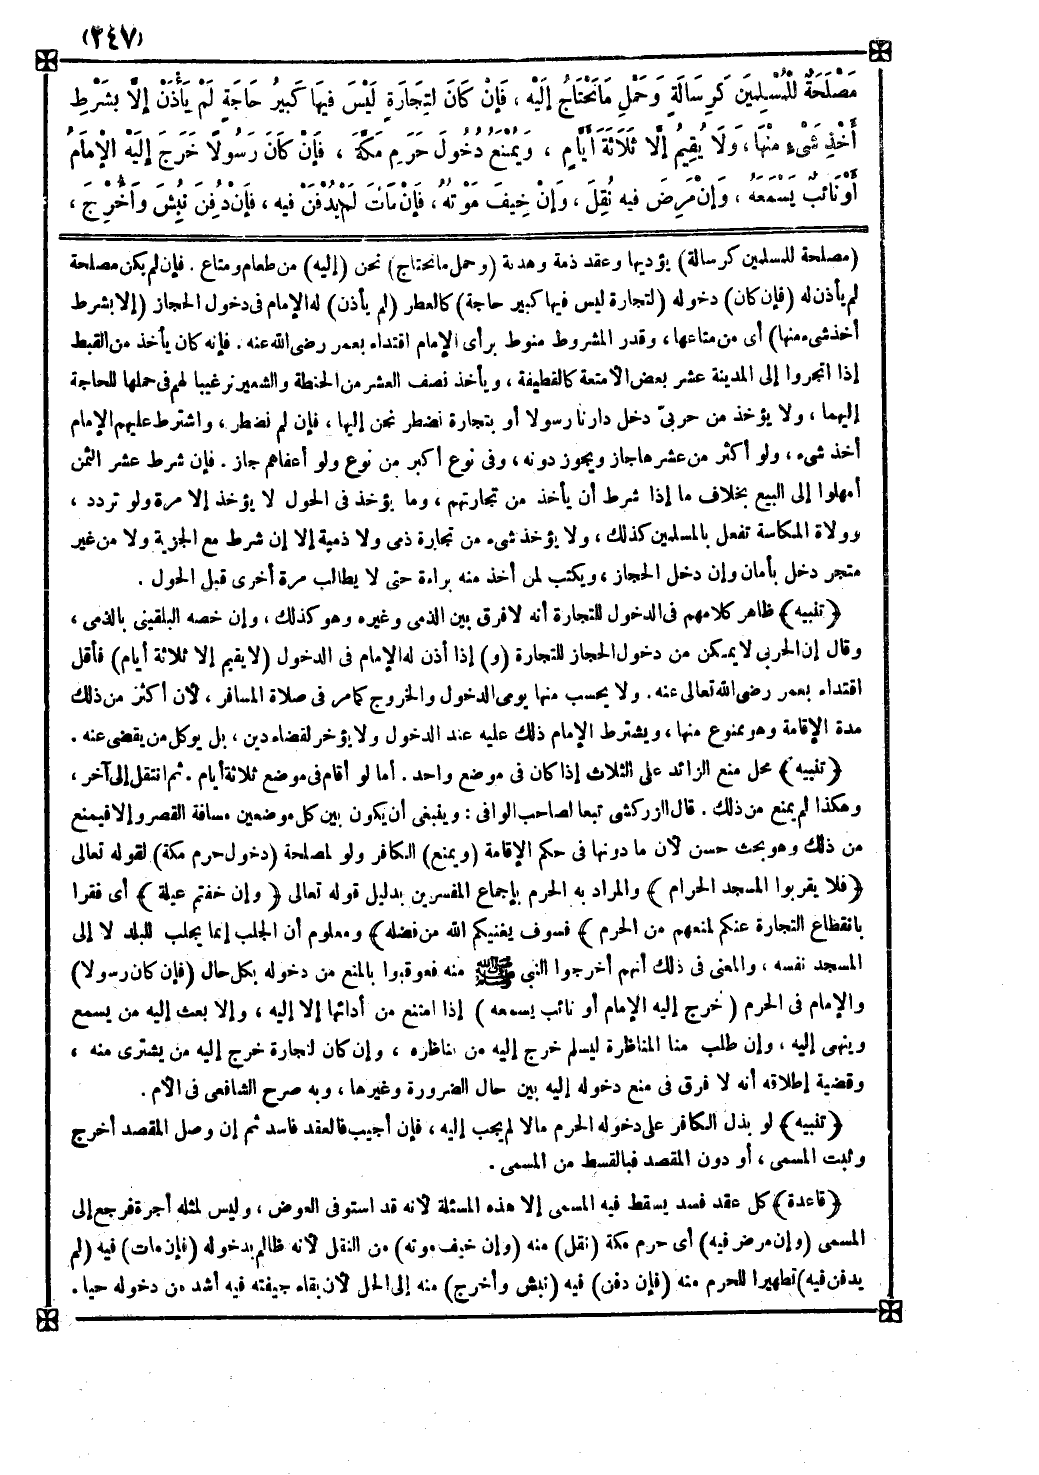 (٢٤٧)
مَصْلَحَةٌ لِلْمُسْلِمِينَ كَرِسَالَةٍ وَحَمْلِ مَا نَحْتَاجُ إلَيْه ، فَإنْ كَانَ لِتِجَارَةٍ لَيْسَ فِيهَا كَبِيرُ حَاجَةٍ لَمْ يَأْذَنْ إلَّا بِشَرْطِ
أَخْذِ شَىْءٍ مِنْهَا ، وَلَا يُقِيمُ إلَّا ثَلَاثَةَ أَيَّامٍ ، وَيُمْنَعُ دُخُولَ حَرَمِ مَكَّةَ ، فَإنْ كَانَ رَسُولًا خَرَجَ إلَيْهِ الْإمَامُ
أَوْ نَائبٌ يَسْمَعَهُ ، وَإنْ مَرِضَ فيه نُقِلَ ، وَإنْ خِيفَ مَوْتُهُ ، فَإنْ مَاتَ لَمْ يُدْفَنْ فيه ، فَإنْ دُفِنَ نُبِشَ وَأُخْرِجَ ،
(مصلحة للمسلمين كرسالة) يؤديها وعقد ذمة وهدنة (وحمل ما نحتاج) نحن (إليه) من طعام ومتاع . فإن لم يكن مصلحة
لم يأذن له (فإن كان) دخوله (لتجارة ليس فيها كبير حاجة) كالعطر (لم يأذن) له الإمام فى دخول الحجاز (إلا بشرط
أخذ شىء منها) أى من متاعها ، وقدر المشروط منوط برأى الإمام اقتداء بعمر رضى الله عنه . فإنه كان يأخذ من القبط
إذا اتجروا إلى المدينة عشر بعض الأمتعة كالقطيفة ، ويأخذ نصف العشر من الحنطة والشعير ترغيبا لهم فى حملها للحاجة
إليهما ، ولا يؤخذ من حربىّ دخل دارنا رسولا أو بتجارة نضطر نحن إليها ، فإن لم نضطر ، واشترط عليهم الإمام
أخذ شىء ، ولو أكثر من عشرها جاز ويجوز دونه ، وفى نوع أكبر من نوع ولو أعفاهم جاز . فإن شرط عشر الثمن
أمهلوا إلى البيع بخلاف ما إذا شرط أن يأخذ من تجارتهم ، وما يؤخذ فى الحول لا يؤخذ إلا مرة ولو تردد ،
وولاة المكاسة تفعل بالمسلمين كذلك ، ولا يؤخذ شىء من تجارة ذمى ولا ذمية إلا إن شرط مع الجزية ولا من غير
متجر دخل بأمان وإن دخل الحجاز ، ويكتب لمن أخذ منه براءة حتى لا يطالب مرة أخرى قبل الحول .
﴿تنبيه﴾ ظاهر كلامهم فى الدخول للتجارة أنه لا فرق بين الذمى وغيره وهو كذلك ، وإن خصه البلقينى بالذمى ،
وقال إن الحربى لا يمكن من دخول الحجاز للتجارة (و) إذا أذن له الإمام فى الدخول (لا يقيم إلا ثلاثة أيام) فأقل
اقتداء بعمر رضى الله تعالى عنه . ولا يحسب منها يومى الدخول والخروج كما مر فى صلاة المسافر ، لأن أكثر من ذلك
مدة الإقامة وهو ممنوع منها ، ويشترط الإمام ذلك عليه عند الدخول ولا يؤخر لقضاء دين ، بل يوكل من يقضى عنه .
﴿تنبيه﴾ محل منع الزائد على الثلاث إذا كان فى موضع واحد . أما لو أقام فى موضع ثلاثة أيام . ثم انتقل إلى آخر ،
وهكذا لم يمنع من ذلك . قال الزركشى تبعا لصاحب الوافى : وينبغى أن يكون بين كل موضعين مسافة القصر وإلا فيمنع
من ذلك وهو بحث حسن لأن ما دونها فى حكم الإقامة (ويمنع) الكافر ولو لمصلحة (دخول حرم مكة) لقوله تعالى
﴿فلا يقربوا المسجد الحرام﴾ والمراد به الحرم بإجماع المفسرين بدليل قوله تعالى ﴿وإن خفتم عيلة﴾ أى فقرا
بانقطاع التجارة عنكم لمنعهم من الحرم ﴾ فسوف يغنيكم الله من فضله﴾ ومعلوم أن الجلب إنما يجلب للبلد لا إلى
المسجد نفسه ، والمعنى فى ذلك أنهم أخرجوا النبى ﷺ منه فعوقبوا بالمنع من دخوله بكل حال (فإن كان رسولا)
والإمام فى الحرم (خرج إليه الإمام أو نائب يسمعه) إذا امتنع من أدائها إلا إليه ، وإلا بعث إليه من يسمع
وينهى إليه ، وإن طلب منا المناظرة ليسلم خرج إليه من يناظره ، وإن كان لتجارة خرج إليه من يشترى منه ،
وقضية إطلاقه أنه لا فرق فى منع دخوله إليه بين حال الضرورة وغيرها ، وبه صرح الشافعى فى الأم .
﴿تنبيه﴾ لو بذل الكافر على دخوله الحرم مالا لم يجب إليه ، فإن أجيب فالعقد فاسد ثم إن وصل المقصد أخرج
وثبت المسمى ، أو دون المقصد فبالقسط من المسمى .
﴿قاعدة﴾ كل عقد فسد يسقط فيه المسمى إلا هذه المسئلة لأنه قد استوفى العوض ، وليس لمثله أجرة فرجع إلى
المسمى (وإن مرض فيه) أى حرم مكة (نقل) منه (وإن خيف موته) من النقل لأنه ظالم بدخوله (فإن مات) فيه (لم
يدفن فيه) تطهيرا للحرم منه (فإن دفن) فيه (نبش وأخرج) منه إلى الحل لأن بقاء جيفته فيه أشد من دخوله حيا .